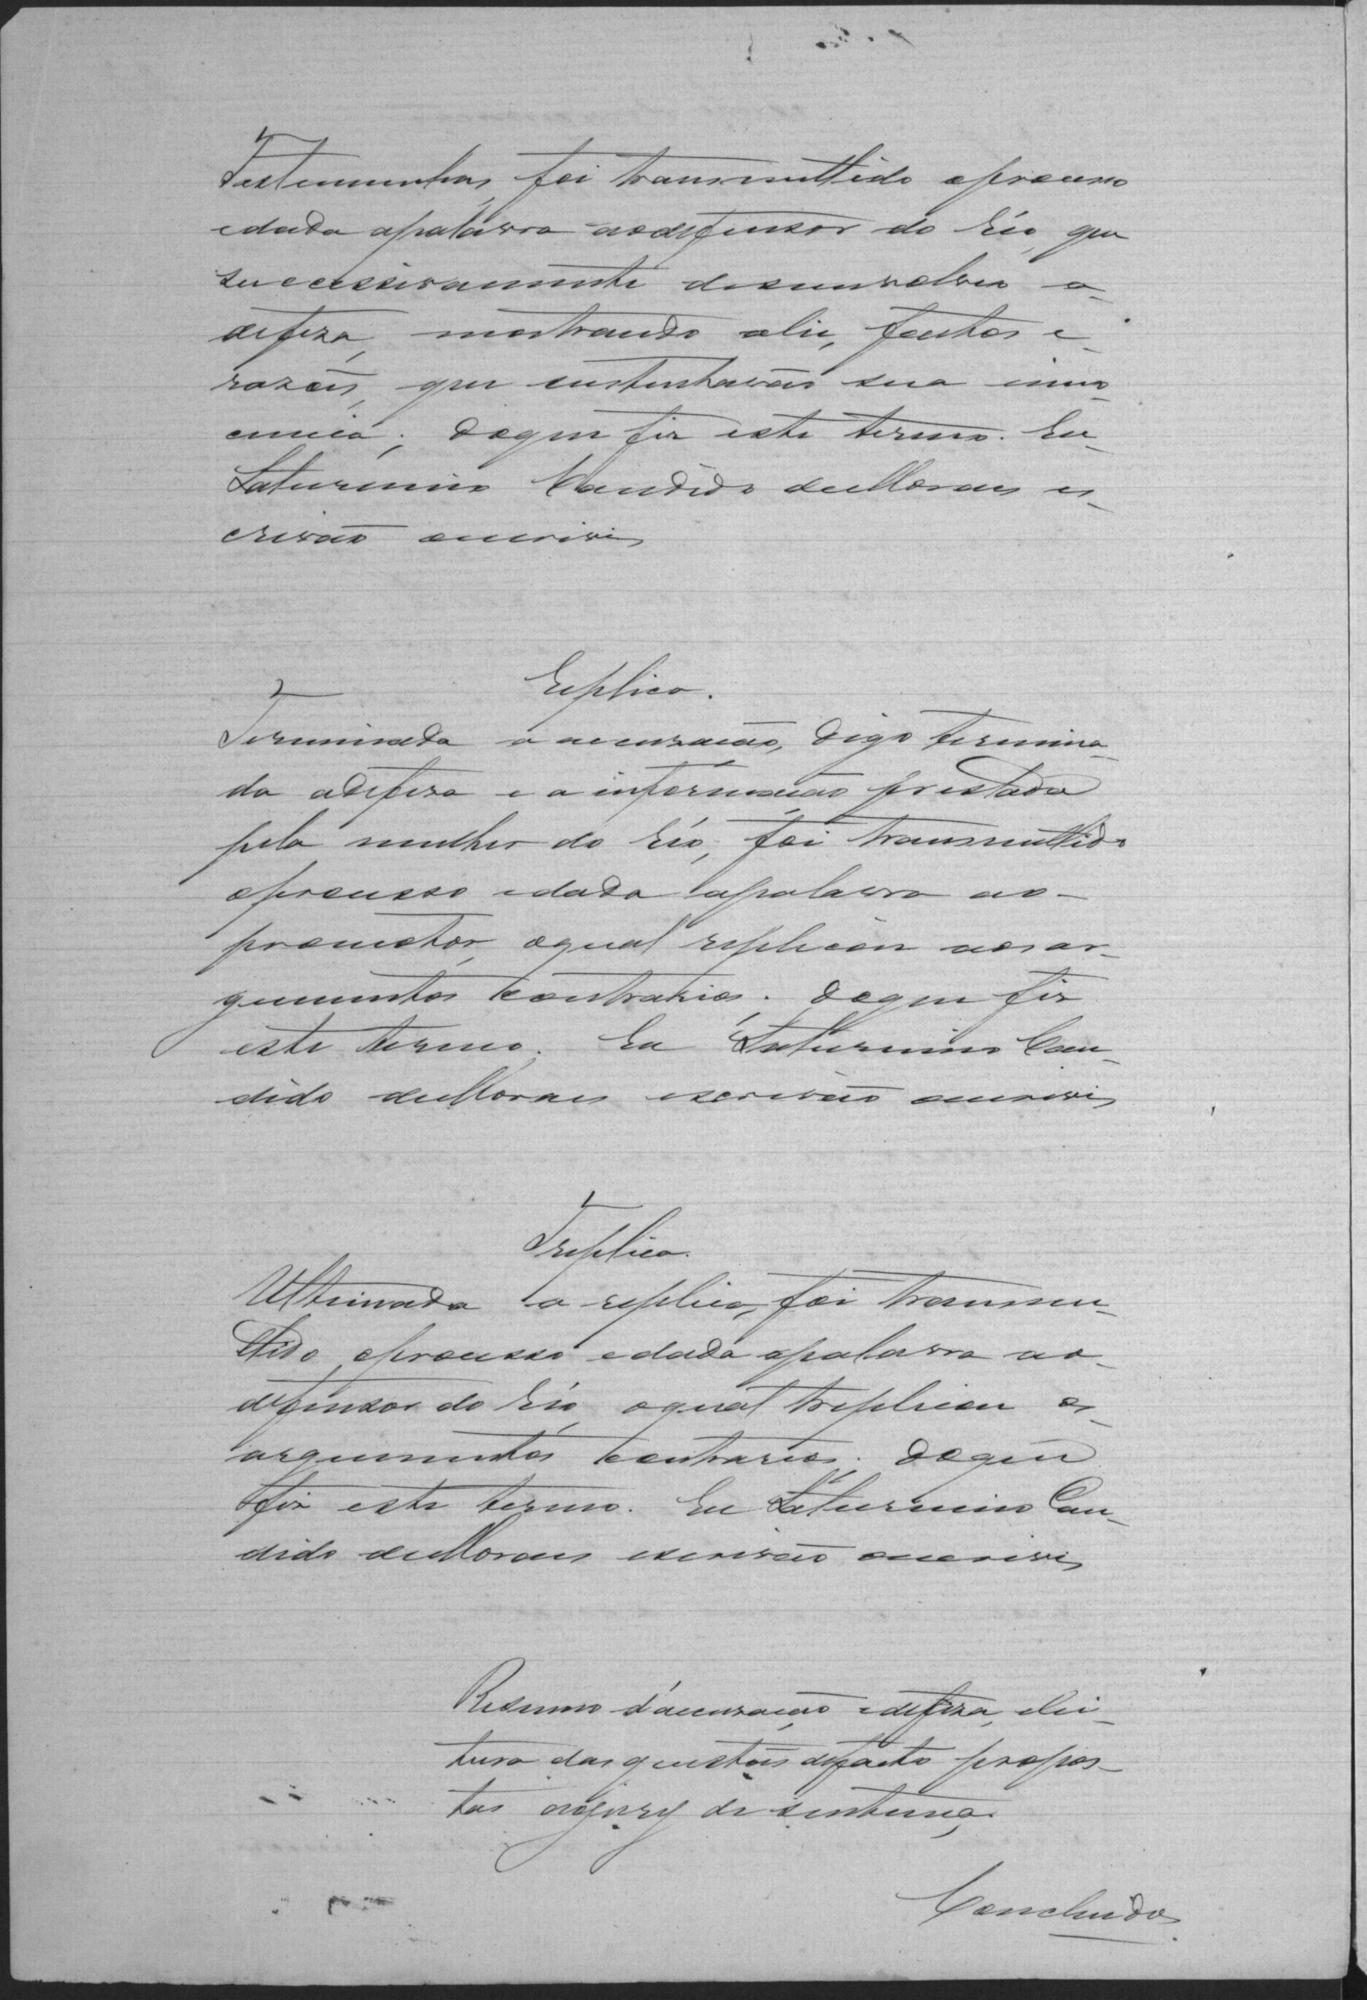 Testemunhas, foi transmittido oprocesso
edada apalavra aodefensor do Réo, que
successivamente desenvolveu a
defeza, mostrando a lei, factos e
razões, que sustentavão sua inno-
cencia; doque fiz este termo. Eu
Saturnino Candido deMoraes es-
crivão oescrivi
Replica.
Terminada a accuzação, digo termina-
da adefeza e a informação prestada
pela mulher do Réo, foi transmittido
oprocesso edada apalavra ao
promotor, oqual replicou aos ar-
gumentos contrarios. doque fiz
este termo. Eu Saturnino Can-
dido deMoraes escrivão oescrivi
Treplica.
Ultimada a replica, foi transmi-
ttido oprocesso edada apalavra ao
defensor do Réo, oqual treplicou os
argumentos contrarios. doque
fiz este termo. Eu Saturnino Can-
dido deMoraes escrivão oescrivi
Resumo d'accuzação edefeza, elei-
tura das questões defacto propos-
tas aojury de sentença.
Concluidos